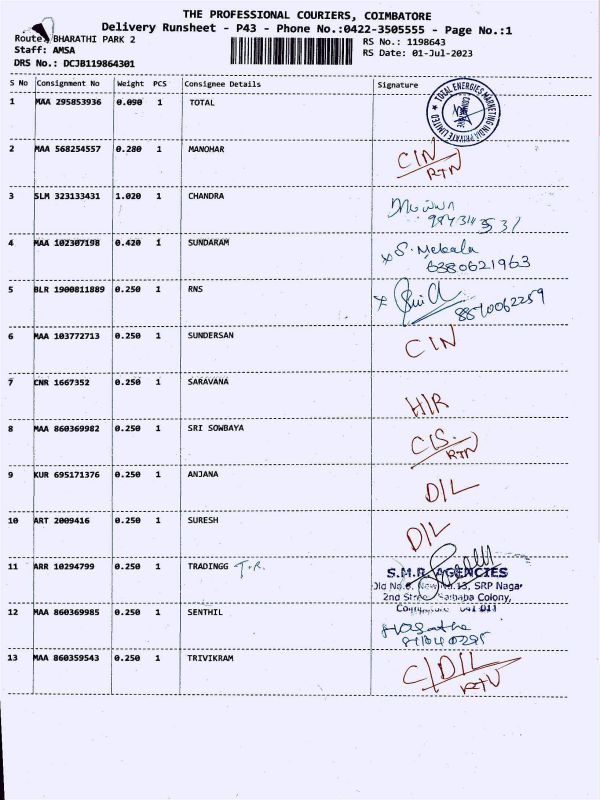 THE PROFESSIONAL COURIERS, COIMBATORE
Delivery Runsheet - P43 - Phone No.:0422-3505555 - Page No.:1
Route: BHARATHI PARK 2
RS No.: 1198643
Staff: AMSA
RS Date: 01-Jul-2023
DRS No.: DCJB119864301
S No Consignment No Weight PCS Consignee Details Signature
1 MAA 295853936 0.090 1 TOTAL
TOTAL ENERGIES MARKETING INDIA PRIVATE LIMITED
2 MAA 568254557 0.280 1 MANOHAR CIN
RTN
3 SLM 323133431 1.020 1 CHANDRA
4 MAA 102307198 0.420 1 SUNDARAM x S. Mekala
6380621963
5 BLR 1900811889 0.250 1 RNS x
8870062259
6 MAA 103772713 0.250 1 SUNDERSAN CIN
7 CNR 1667352 0.250 1 SARAVANA HIR
8 MAA 860369982 0.250 1 SRI SOWBAYA CIS.
RTN
9 KUR 695171376 0.250 1 ANJANA DIL
10 ART 2009416 0.250 1 SURESH DIL
11 ARR 10294799 0.250 1 TRADINGG T.R.
S.M.R. AGENCIES
Old No.6, New No.13, SRP Nagar
2nd Street Saibaba Colony,
Coimbatore 641 011
12 MAA 860369985 0.250 1 SENTHIL
13 MAA 860359543 0.250 1 TRIVIKRAM C/DIL
RTN